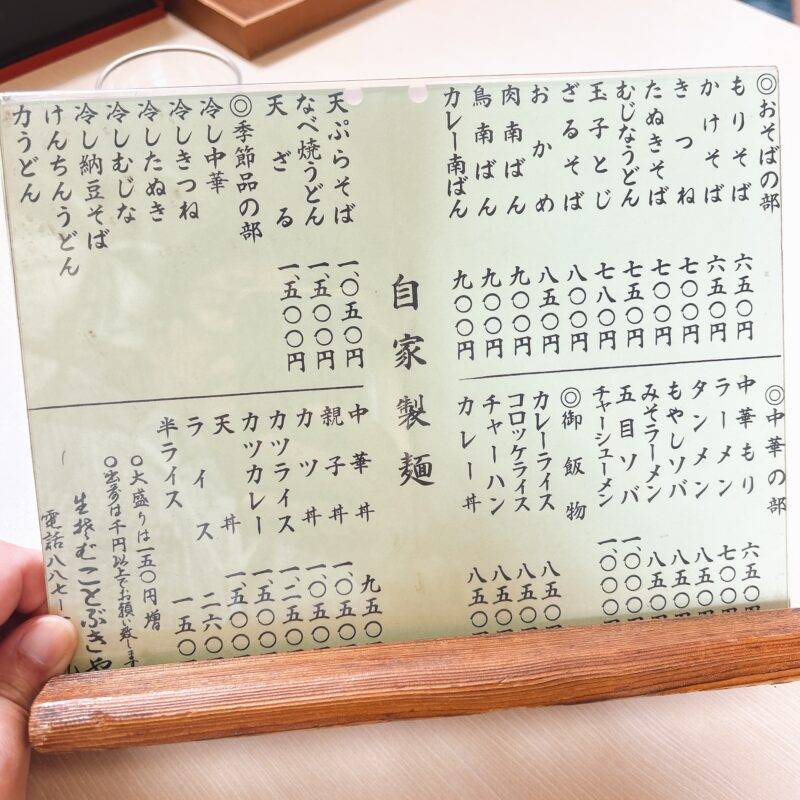 ◎おそばの部
もりそば 六五〇円
かけそば 六五〇円
きつね 七〇〇円
たぬきそば 七〇〇円
むじなうどん 七五〇円
玉子とじ 七八〇円
ざるそば 八〇〇円
おかめ 八五〇円
肉南ばん 九〇〇円
鳥南ばん 九〇〇円
カレー南ばん 九〇〇円
自家製麺
天ぷらそば 一、〇五〇円
なべ焼うどん 一、五〇〇円
天ざる 一、五〇〇円
◎季節品の部
冷し中華
冷しきつね
冷したぬき
冷しむじな
冷し納豆そば
けんちんうどん
力うどん
◎中華の部
中華もり 六五〇
ラーメン 七〇〇
タンメン 八五〇
もやしソバ 八五〇
みそラーメン 八五〇
五目ソバ 一、〇〇〇
チャーシューメン 一、〇〇〇
◎御飯物
カレーライス 八五〇
コロッケライス 八五〇
チャーハン 八五〇
カレー丼 八五〇
中華丼 九五〇
親子丼 一、〇五〇
カツ丼 一、〇五〇
カツライス 一、二五〇
カツカレー 一、五〇
天丼 一、五〇
ライス 二六〇
半ライス 一五〇
○大盛りは一五〇円増
○出前は千円以上でお願い致します
生そば ことぶきや
電話八八七ー